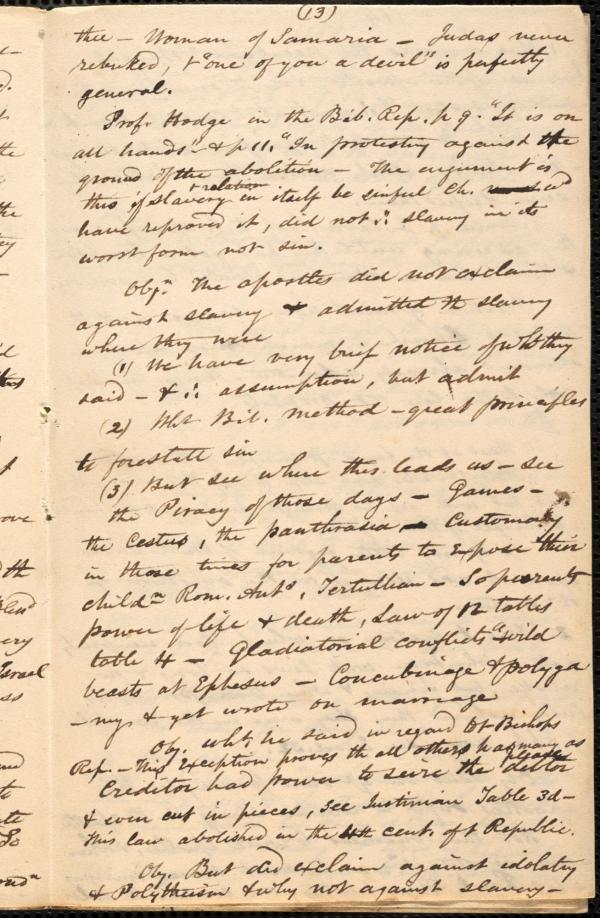 (13)
thee – Woman of Samaria – Judas never
rebuked, & "one of you a devil" is perfectly
general.
Prof. Hodge in the Bib. Rep. p 9. "It is on
all hands" – & p 11. "In protesting against the
ground of the abolition – The argument is
& relation
this if slavery in itself be sinful Ch.
have reproved it, did not ∴ slavery in its
worst form not sin.
Obj.n The apostles did not exclaim
against slavery & admitted th slavery
where they were
(1) We have very brief notice of wht they
said – & ∴ assumption, but admit
(2) Wht Bib. method – great principles
to forestall sin
(3) But see where this leads us – see
the Piracy of those days – Games –
the Cestus, the panthrasia – Customary
in those times for parents to Expose their
childn Rom. Ants, Tertullian – So parents
power of life & death, Law of 12 tables
table 4 – Gladiatorial conflicts " wild
beasts at Ephesus – Concubinage & polyga
– my & yet wrote on marriage
Ob. wht he said in regard to Bishops
Rep. – This Exception proves th all others had many as
pleased
Creditor had power to seize the debtor
& even cut in pieces, see Justinian Table 3d –
This law abolished in the 4th cent. of t Republic.
Ob. But did exclaim against idolatry
& Polytheism & why not against slavery –